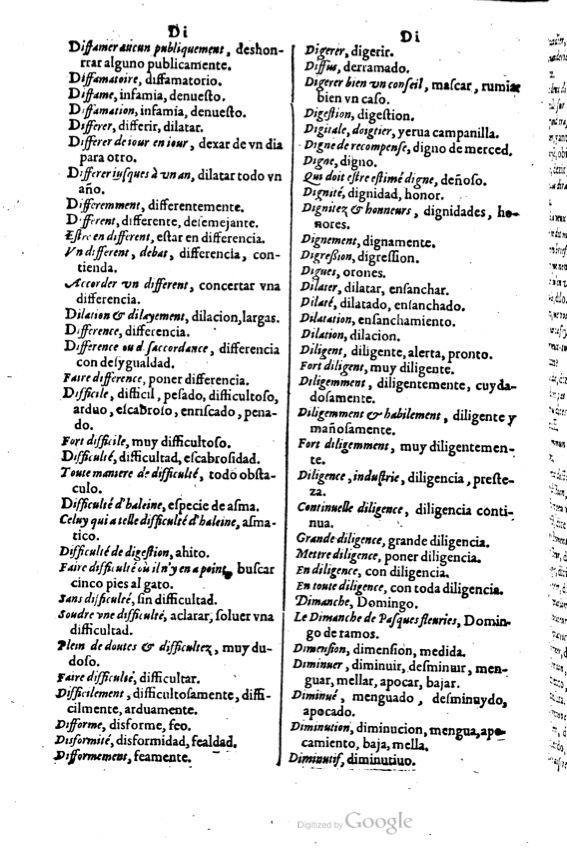 Di
Diffamer aucun publiquement, deshon-
rrar alguno publicamente.
Diffamatoire, diffamatorio.
Diffame, infamia, denueſto.
Diffamation, infamia, denueſto.
Differer, differir, dilatar.
Differer de iour en iour, dexar de vn dia
para otro.
Differer iuſques à vn an, dilatar todo vn
año.
Differemment, differentemente.
Different, differente, deſemejante.
Eſtre en different, eſtar en differencia.
Vn different, debat, differencia, con-
tienda.
Accorder vn different, concertar vna
differencia.
Dilation & dilayement, dilacion, largas.
Difference, differencia.
Difference ou d ſaccordance, differencia
con deſygualdad.
Faire difference, poner differencia.
Difficile, difficil, peſado, difficultoſo,
arduo, eſcabroſo, enriſcado, pena-
do.
Fort difficile, muy difficultoſo.
Difficulté, difficultad, eſcabroſidad.
Toute maniere de difficulté, todo obſta-
culo.
Difficulté d'haleine, eſpecie de aſma.
Celuy qui a telle difficulté d'haleine, aſma-
tico.
Difficulté de digeſtion, ahito.
Faire difficulté où il n'y en a point, buſcar
cinco pies al gato.
Sans difficulté, ſin difficultad.
Soudre vne difficulté, aclarar, ſoluer vna
difficultad.
Plein de doutes & difficultez, muy du-
doſo.
Faire difficulté, difficultar.
Difficilement, difficultoſamente, diffi-
cilmente, arduamente.
Difforme, disforme, feo.
Disformité, disformidad, fealdad.
Difformement, feamente.
Di
Digerer, digerir.
Diffus, derramado.
Digerer bien vn conſeil, maſcar, rumiar
bien vn caſo.
Digeſtion, digeſtion.
Digitale, doigtier, yerua campanilla.
Digne de recompenſe, digno de merced.
Digne, digno.
Qui doit eſtre eſtimé digne, deñoſo.
Dignité, dignidad, honor.
Dignitez & honneurs, dignidades, ho-
nores.
Dignement, dignamente.
Digreſſion, digreſſion.
Digues, orones.
Dilater, dilatar, enſanchar.
Dilaté, dilatado, enſanchado.
Dilatation, enſanchamiento.
Dilation, dilacion.
Diligent, diligente, alerta, pronto.
Fort diligent, muy diligente.
Diligemment, diligentemente, cuyda-
doſamente.
Diligemment & habilement, diligente y
mañoſamente.
Fort diligemment, muy diligentemen-
te.
Diligence, induſtrie, diligencia, preſte-
za.
Continuelle diligence, diligencia conti-
nua.
Grande diligence, grande diligencia.
Mettre diligence, poner diligencia.
En diligence, con diligencia.
En toute diligence, con toda diligencia.
Dimanche, Domingo.
Le Dimanche de Paſques fleuries, Domin-
go de ramos.
Dimenſion, dimenſion, medida.
Diminuer, diminuir, deſminuir, men-
guar, mellar, apocar, bajar.
Diminué, menguado, deſminuydo,
apocado.
Diminution, diminucion, mengua, apo-
camiento, baja, mella.
Diminutif, diminutiuo.
Digitized by Google